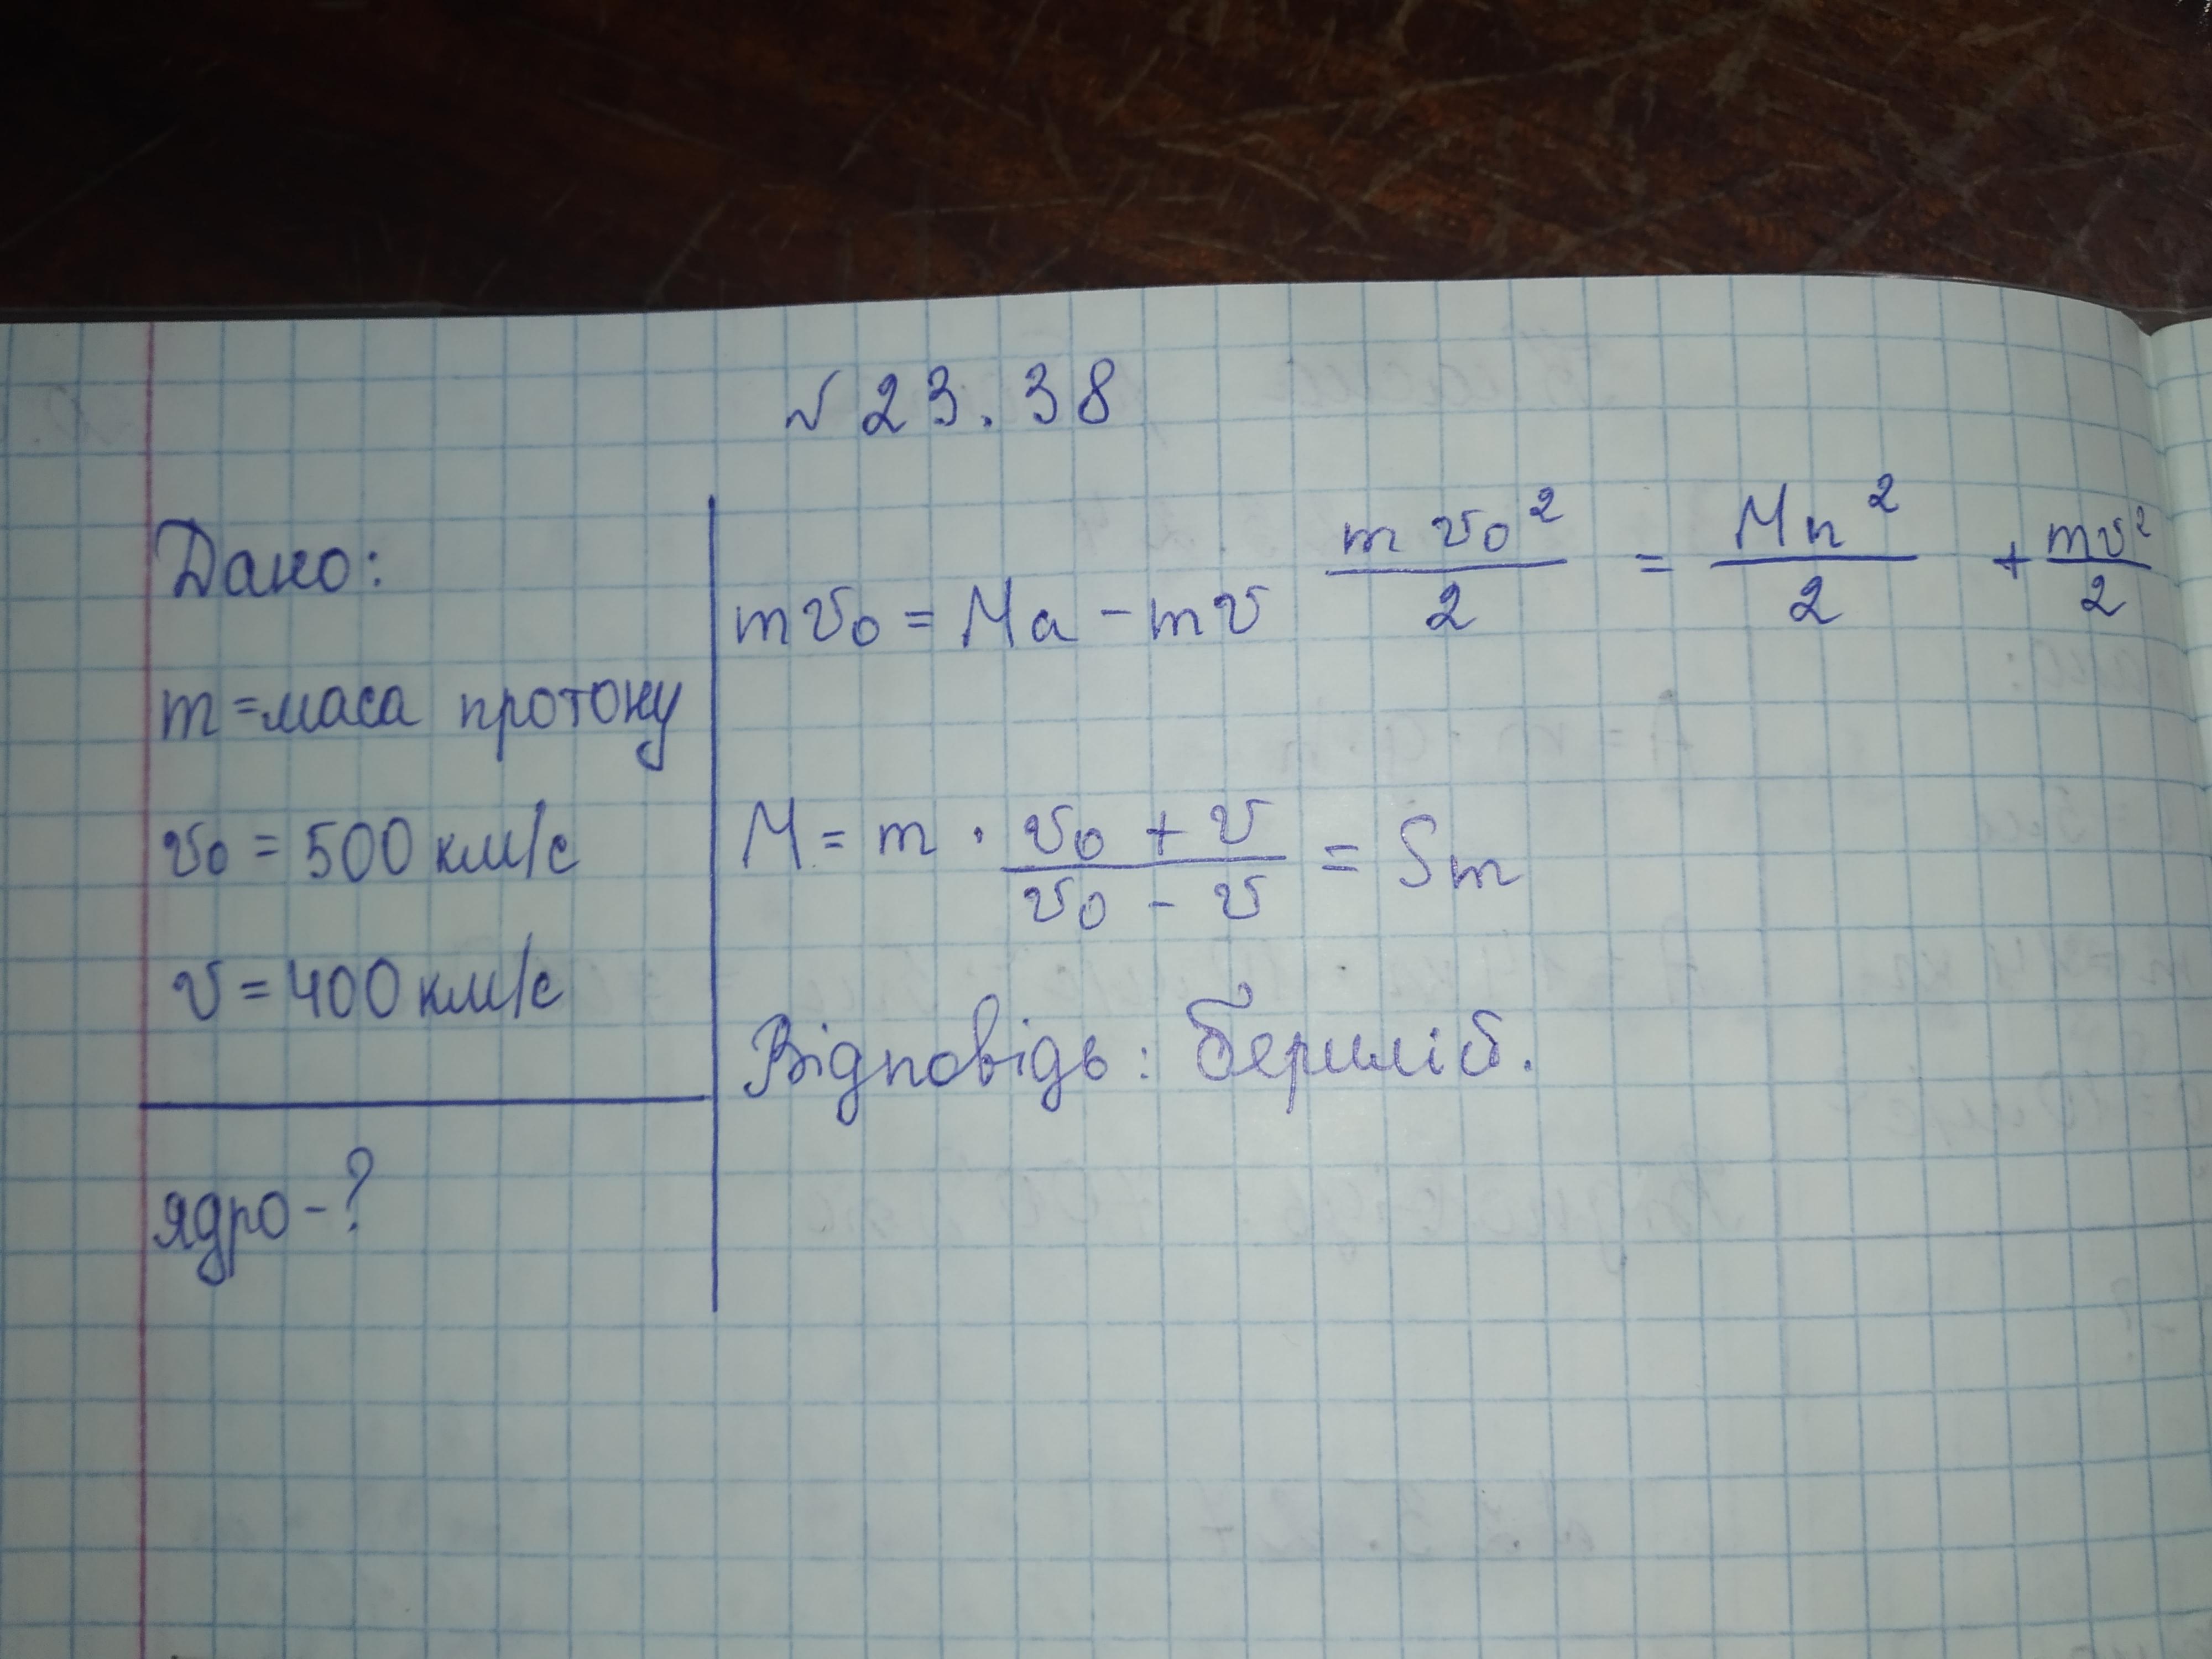 № 23.38
Дано:
m = маса протону
v₀ = 500 км/с
v = 400 км/с
ядро - ?
mv₀ = Ma - mv  mv₀²/2 = Mn²/2 + mv²/2
M = m · (v₀ + v)/(v₀ - v) = Sm
Відповідь: берилій.